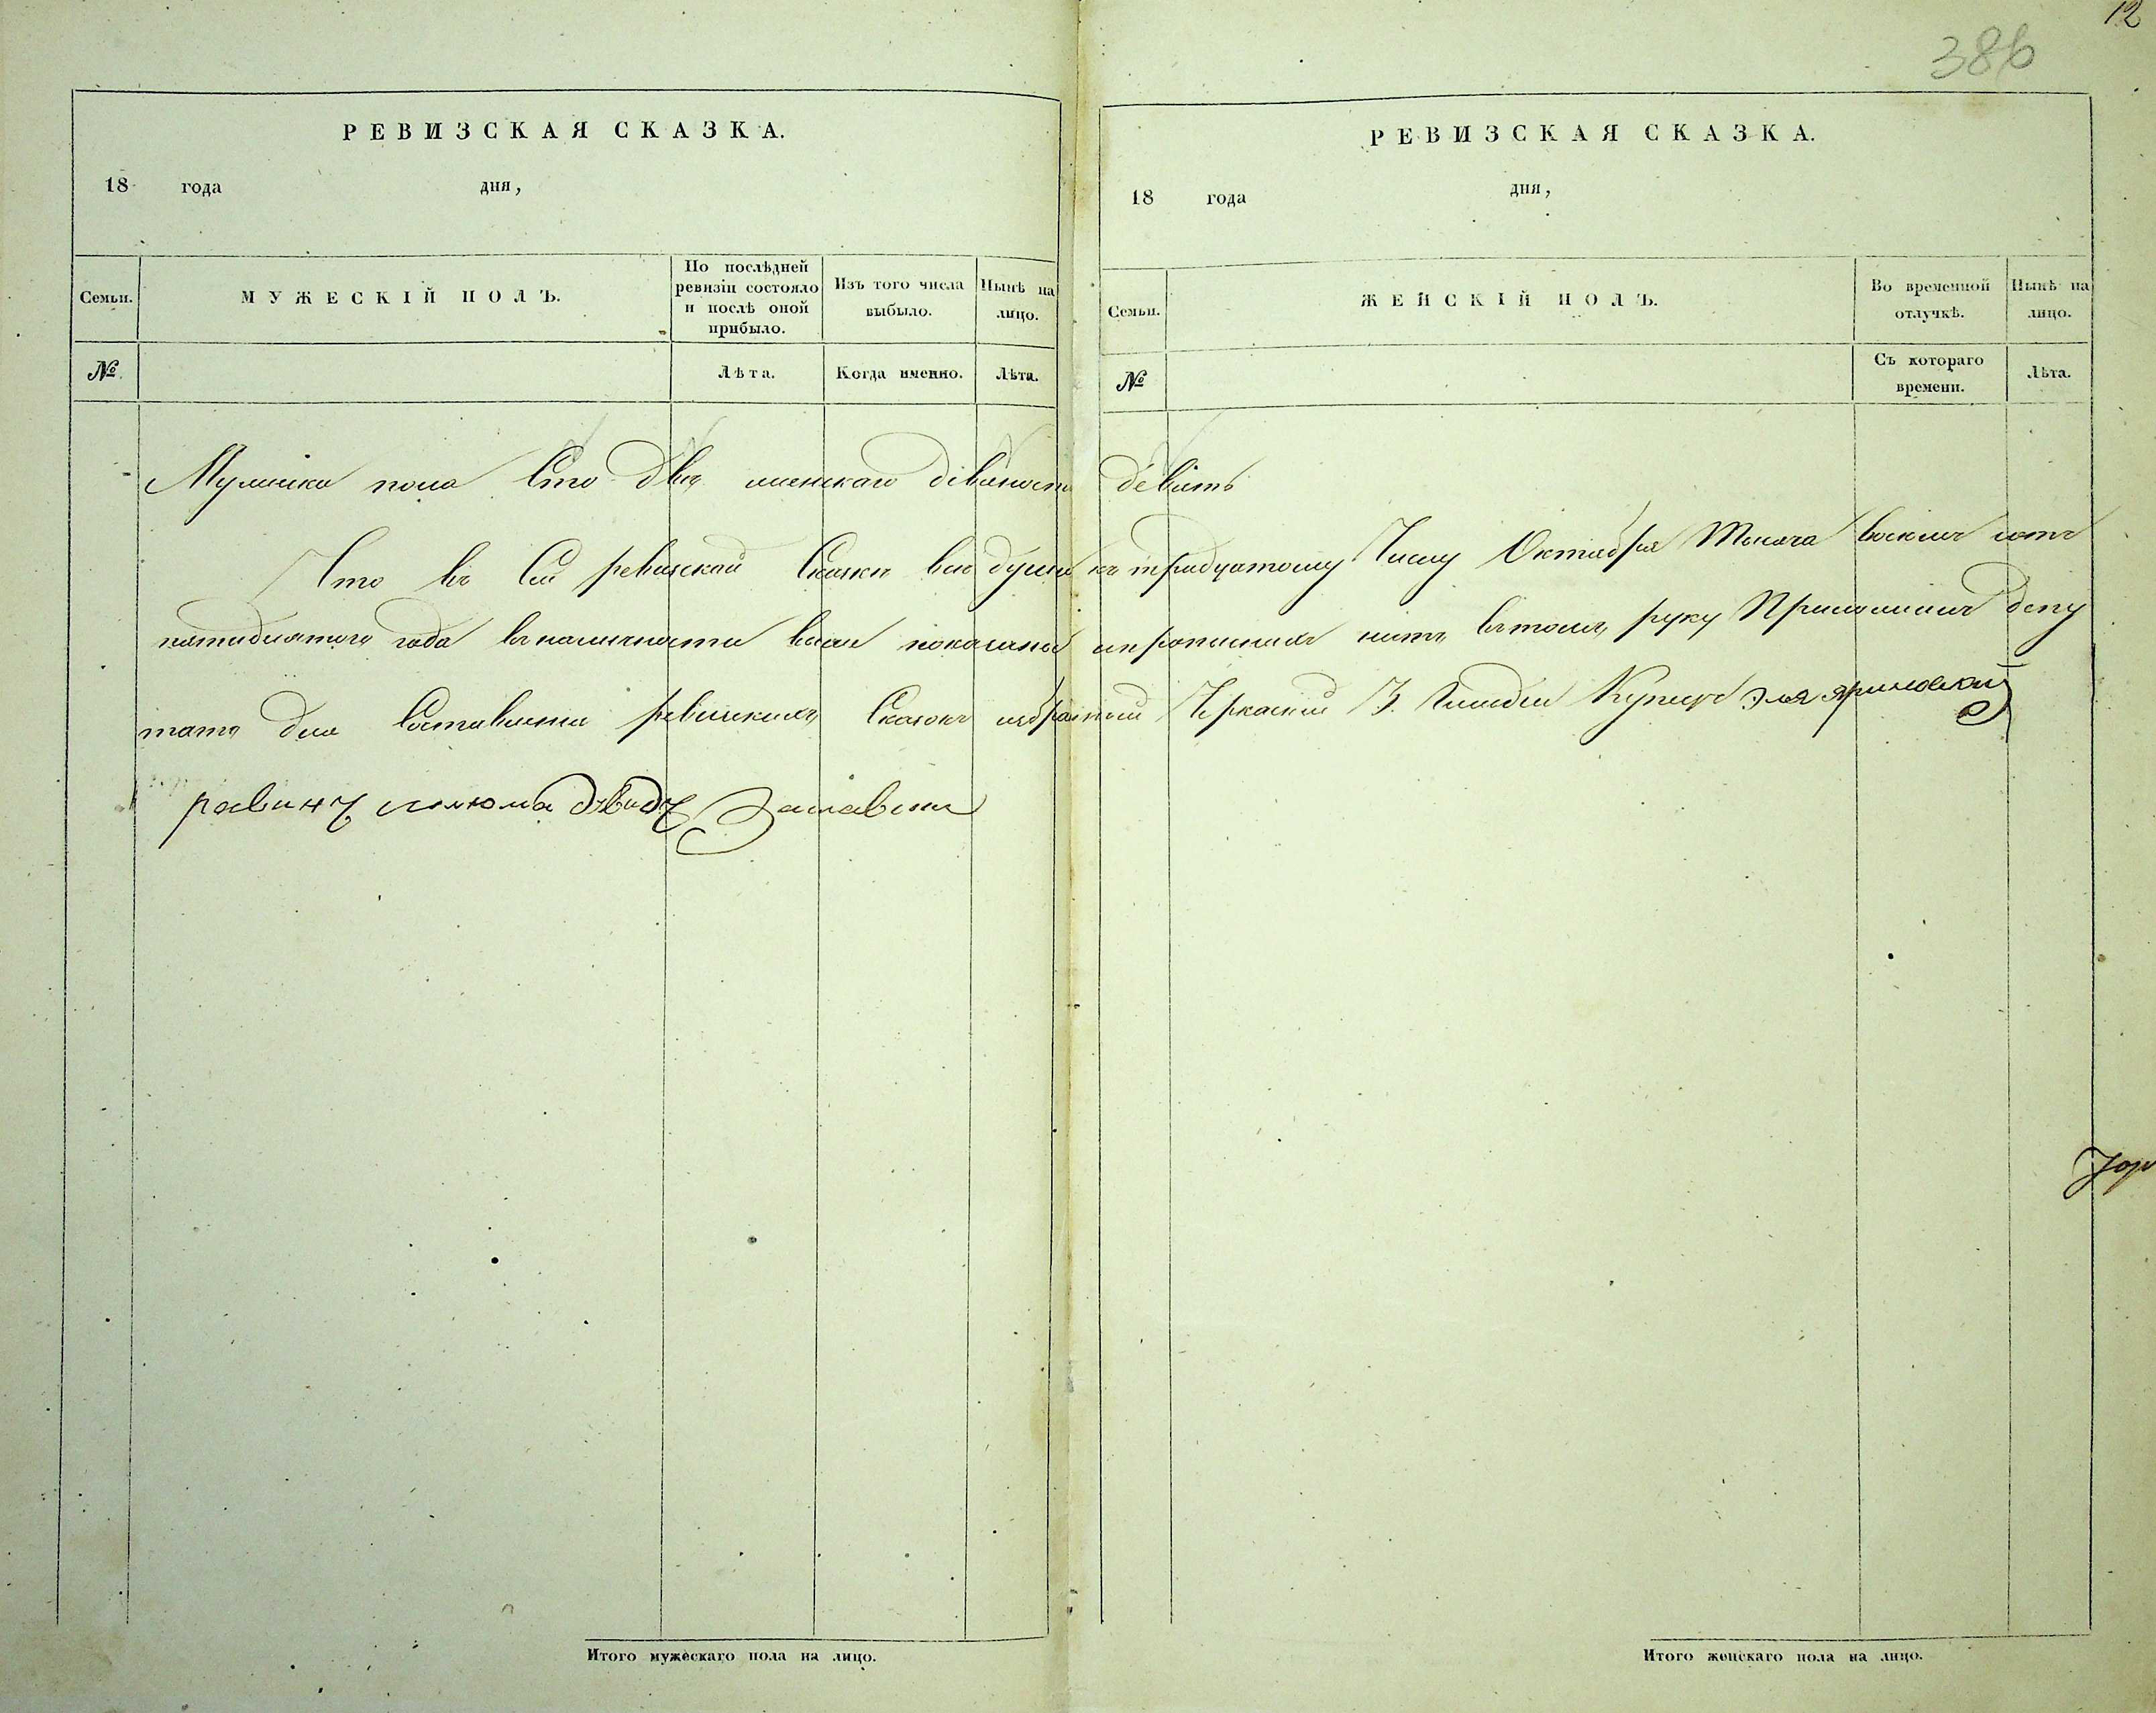 12
386
РЕВИЗСКАЯ СКАЗКА.
18 года дня,
Семьи.
МУЖЕСКІЙ ПОЛЪ.
По послѣдней ревизіи состояло и послѣ оной прибыло.
Изъ того числа выбыло.
Нынѣ на лицо.
№
Лѣта.
Когда именно.
Лѣта.
РЕВИЗСКАЯ СКАЗКА.
18 года дня,
Семьи.
ЖЕНСКІЙ ПОЛЪ.
Во временной отлучкѣ.
Нынѣ на лицо.
№
Съ котораго времени.
Лѣта.
пола Сто двѣ женскаго девяносто девять
Что въ сей ревизской Сказки все души къ тридцатому Числу Октября Тысяча восемъ сотъ
пятидесятого года в наличности показаны нетъ въ томъ руку Приложилъ депу
татъ для Составления ревизскихъ Сказокъ избраный Черкаский 3. Гилдии Купецъ Эля Яриновский
равинъ шлюма давидъ Заславски
Итого мужескаго пола на лицо.
Итого женскаго пола на лицо.